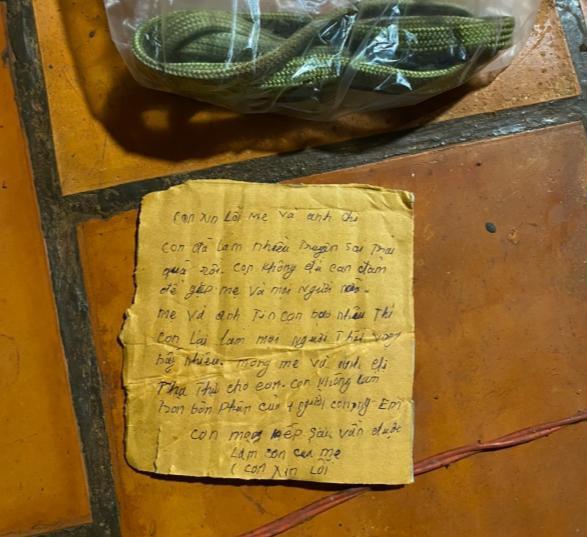 Con xin Lỗi mẹ và anh chị
con đã làm nhiều truyện sai trái
quá rồi. con không đủ can đảm
để gặp mẹ và mọi người nữa.
mẹ và anh Tin con bao nhiêu Thì
con lại làm mọi người Thất vọng
bấy nhiêu. mong mẹ và anh chị
Tha Thứ cho con. con không làm
tròn bổn phận của 1 người con, Em
con mong kiếp sau vẫn được
Làm con của mẹ
(con xin Lỗi